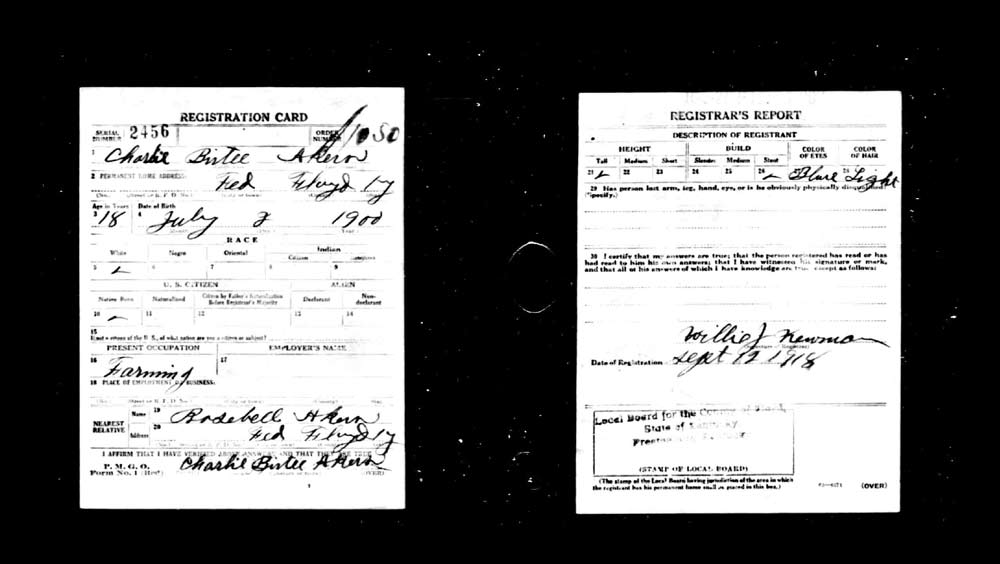 REGISTRATION CARD
SERIAL NUMBER 2456 ORDER NUMBER 1050
1 Charlie Birtee Akers
2 PERMANENT HOME ADDRESS:
Fed Floyd Ky
Age in Years Date of Birth
3 18 4 July 1900
RACE
White Negro Oriental Indian
Citizen
5 6 7 8 9
U. S. CITIZEN ALIEN
Native Born Naturalized Citizen by Father's Naturalization Before Registrant's Majority Declarant Non-declarant
10 11 12 13 14
15
If not a citizen of the U. S., of what nation are you a citizen or subject?
PRESENT OCCUPATION EMPLOYER'S NAME
16 17
Farming
18 PLACE OF EMPLOYMENT OR BUSINESS:
NEAREST RELATIVE Name 19 Rosebell Akers
Address 20 Fed Floyd Ky
I AFFIRM THAT I HAVE VERIFIED ABOVE ANSWERS AND THAT THEY ARE TRUE
P. M. G. O.
Form No. 1 (Red) Charlie Birtee Akers (OVER)
REGISTRAR'S REPORT
DESCRIPTION OF REGISTRANT
HEIGHT BUILD COLOR OF EYES COLOR OF HAIR
Tall Medium Short Slender Medium Stout
21 22 23 24 25 26 Blue Light
29 Has person lost arm, leg, hand, eye, or is he obviously physically disqualified?
(Specify.)
30 I certify that my answers are true; that the person registered has read or has
had read to him his own answers; that I have witnessed his signature or mark,
and that all of his answers of which I have knowledge are true, except as follows:
Willie J Newman
Date of Registration Sept 12 1918
Local Board for the County of
State of Kentucky
(STAMP OF LOCAL BOARD)
(The stamp of the Local Board having jurisdiction of the area in which
the registrant has his permanent home shall be placed in this box.)
(OVER)